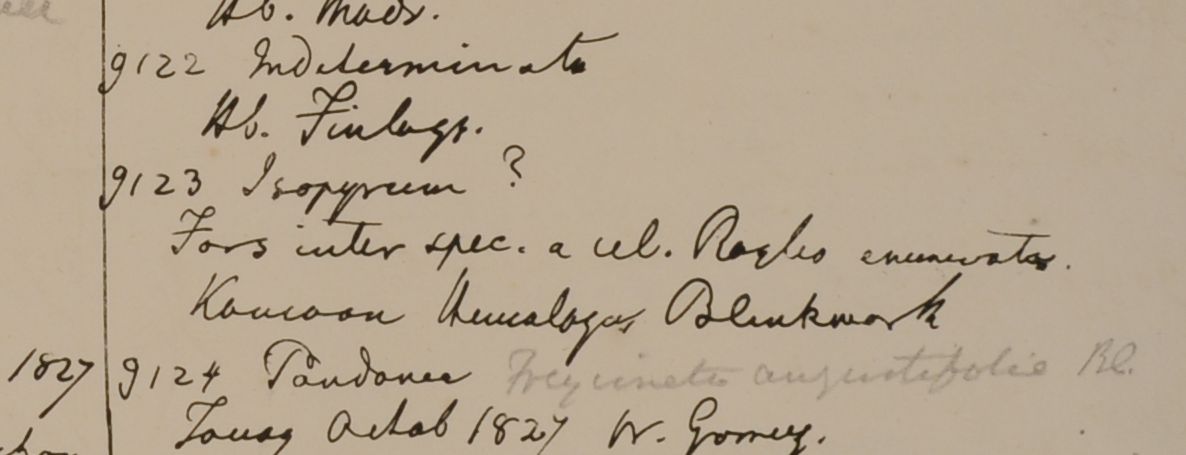 Hb. Madr.
9122 Indeterminata
Hb. Finlays.
9123 Isopyrum ?
Fors inter spec. a cel. Royleo enumeratas.
Kamaon Himalaya Blinkwork
1827 9124 Pandanea Freycinetia angustifolia Bl.
Tavoy Octob 1827 W. Gomez.